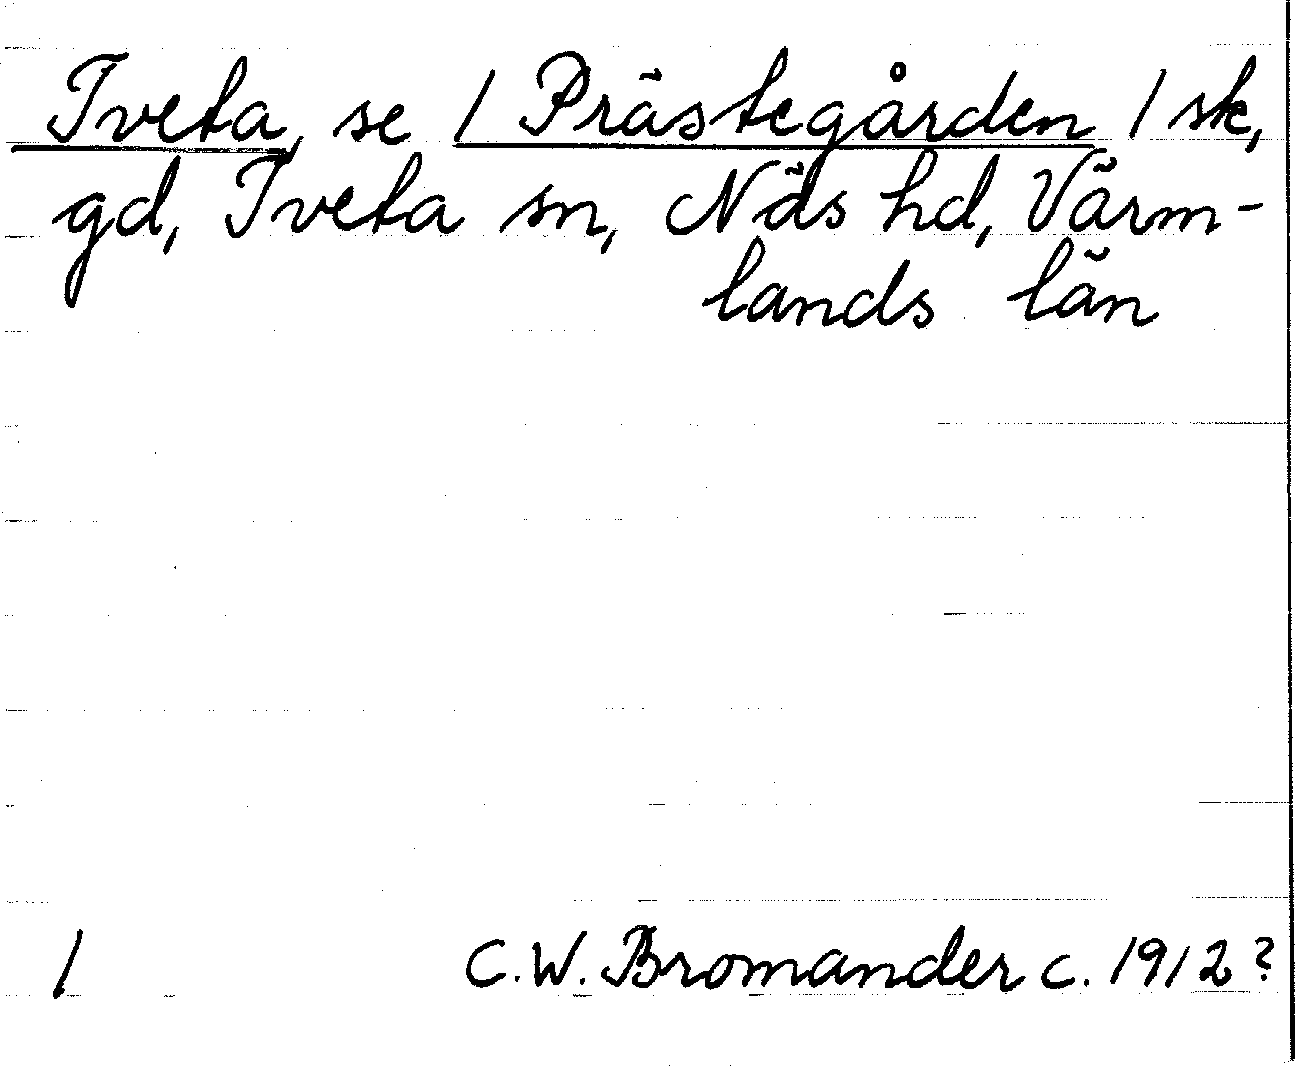 Tveta, se / Prästegården / sk,
gd, Tveta sn, Näs hd, Värm-
lands län
/ C.W. Bromander c. 1912?